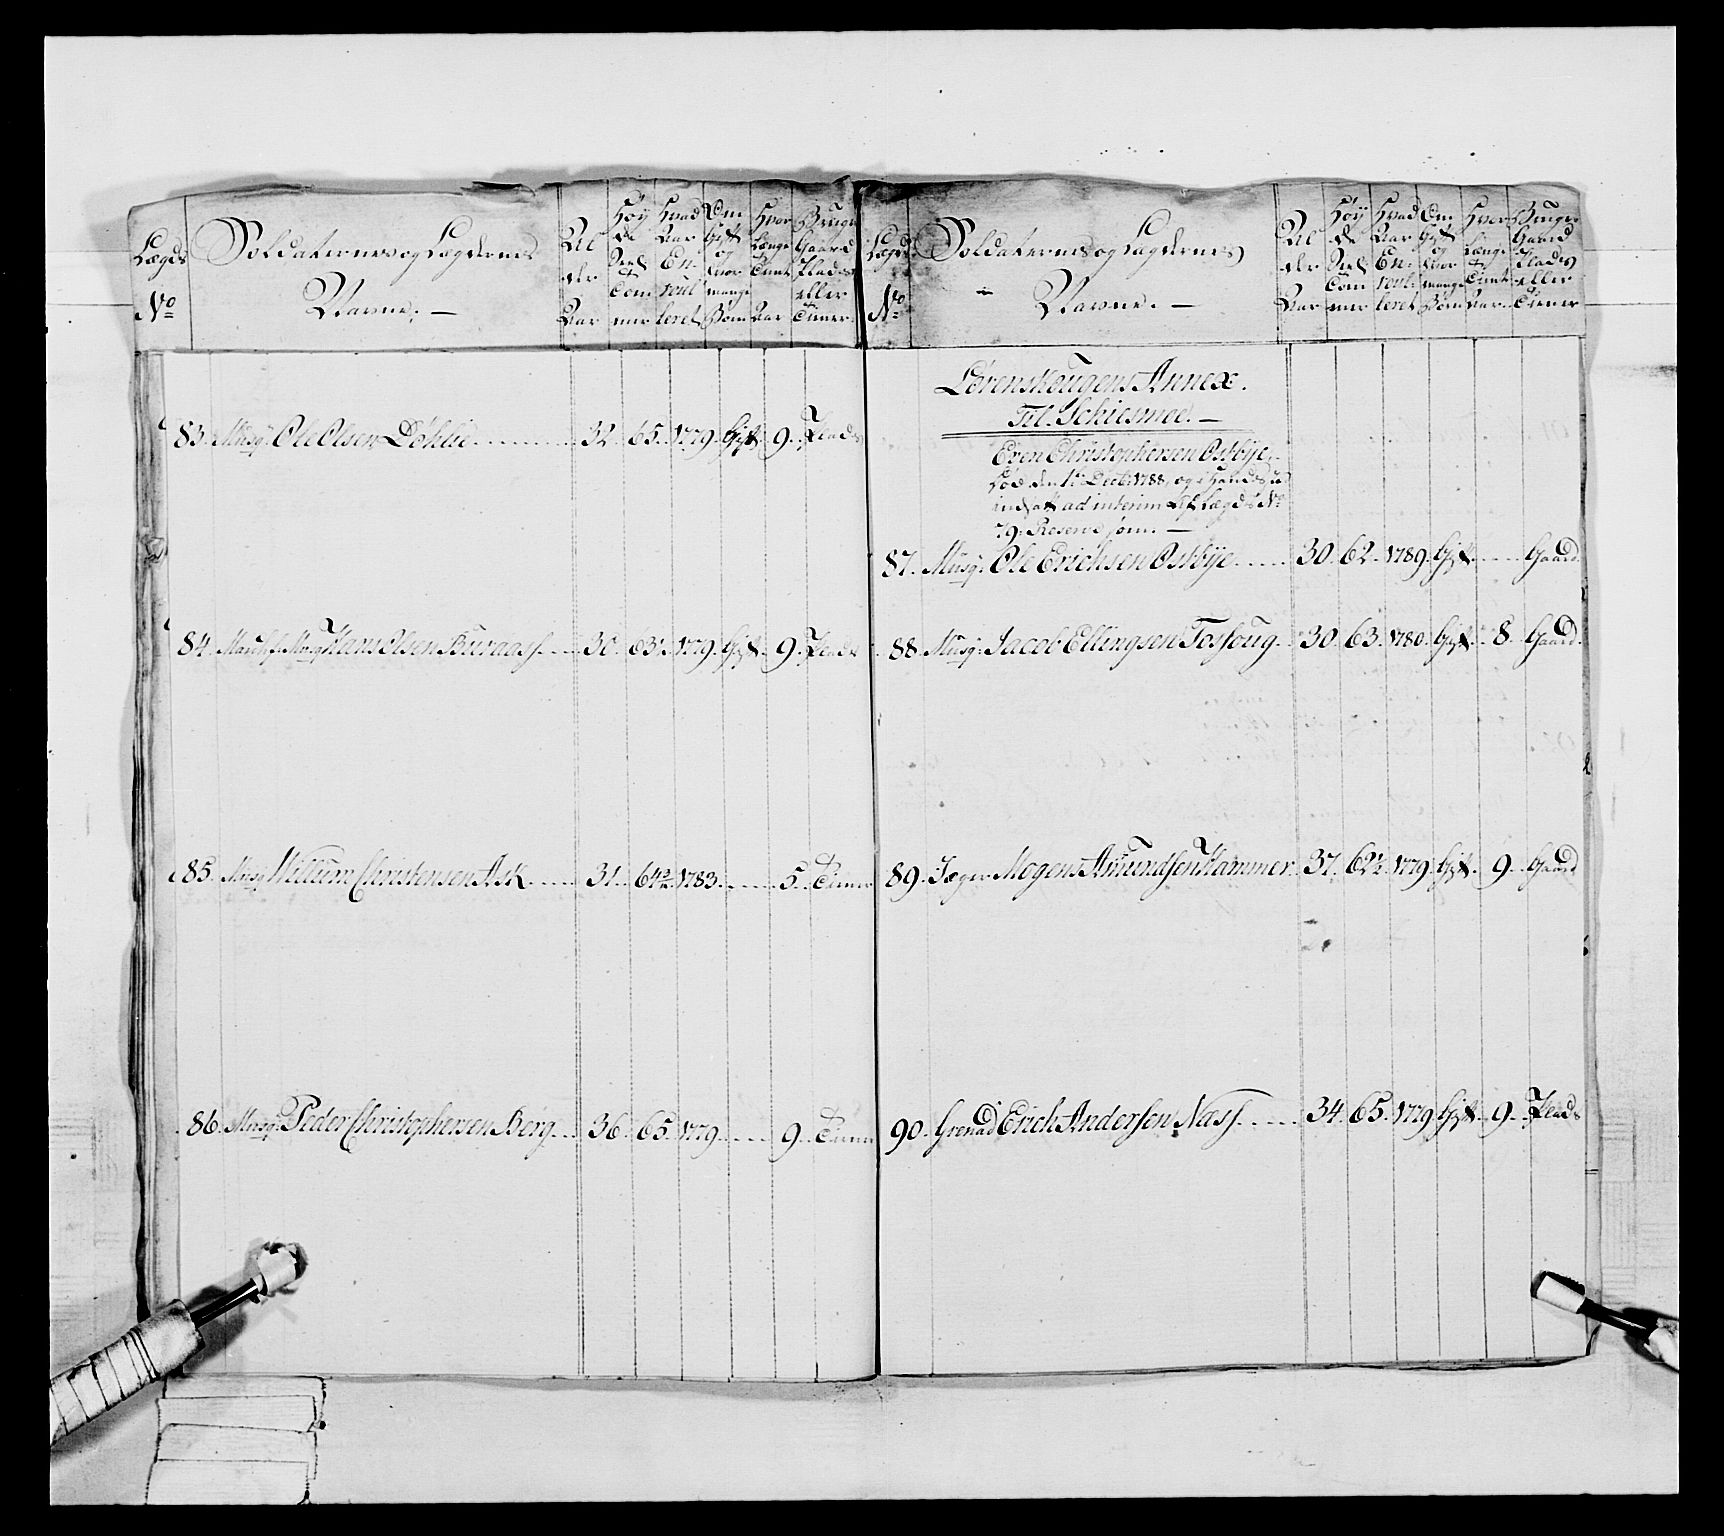 Lægds No
Soldaternes og Lægdernes Navne. —
Al der Aar
Høy de Siel Tom mer
Hvad Aar En roul leret
Om Gift og hvor mange Børn
Hvor Længe Tient Aar
Bruger Gaard Plads eller Tiener
83. Musq: Ole Olsen Døhlie 32. 65. 1779. Gift. 9. Plads
84. Hans Olsen Buraass 30. 63. 1779. Gift. 9. Plads
85. Musq: Willum Christensen Ask 31. 64½ 1783. 5. Tiener
86. Musq: Peder Christophersen Berg 36. 65. 1779 9. Tiener
Lægds No
Soldaternes og Lægdernes Navne. —
Al der Aar
Høy de Siel Tom mer
Hvad Aar En roul: leret
Om Gift og hvor mange Børn
Hvor Længe Tient Aar
Bruger Gaard Plads eller Tiener
Lørenskougens Annex.
Til Schiesmoe. —
Even Christophersen Østbye,
død den 1te Decbr: 1788, og
indsatt ad interim af Lægds No
79. Reserve søn. —
87. Musq: Ole Erichsen Østbye 30. 62. 1789. Gift. Gaard.
88. Musq: Jacob Ellingsen Tosoug 30. 63. 1780. Gift. 8. Gaard.
89. Jæger Mogens Amundsen Hammer. 37. 62½. 1779. Gift. 9. Gaard
90. Grenad Erich Andersen Næss 34. 65. 1779. Gift. 9. Plads